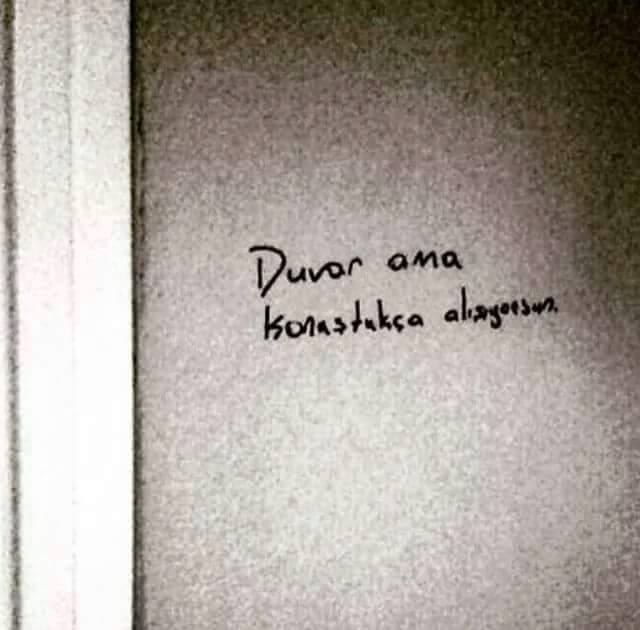 Duvar ama
konuştukça alışıyorsun.